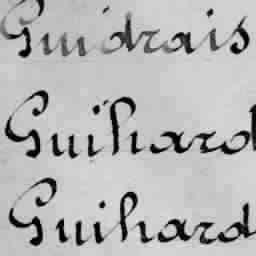 Guidrais
Guihard
Guihard